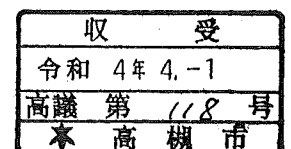 収受
令和 4年 4.-1
高議 第 118 号
★ 高槻市